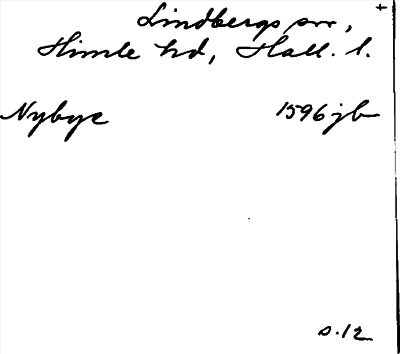 +
Lindbergs sn,
Himle hd, Hall. l.
Nybye 1596 jb
s. 12